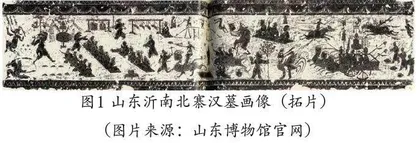 图1 山东沂南北寨汉墓画像（拓片）
（图片来源：山东博物馆官网）